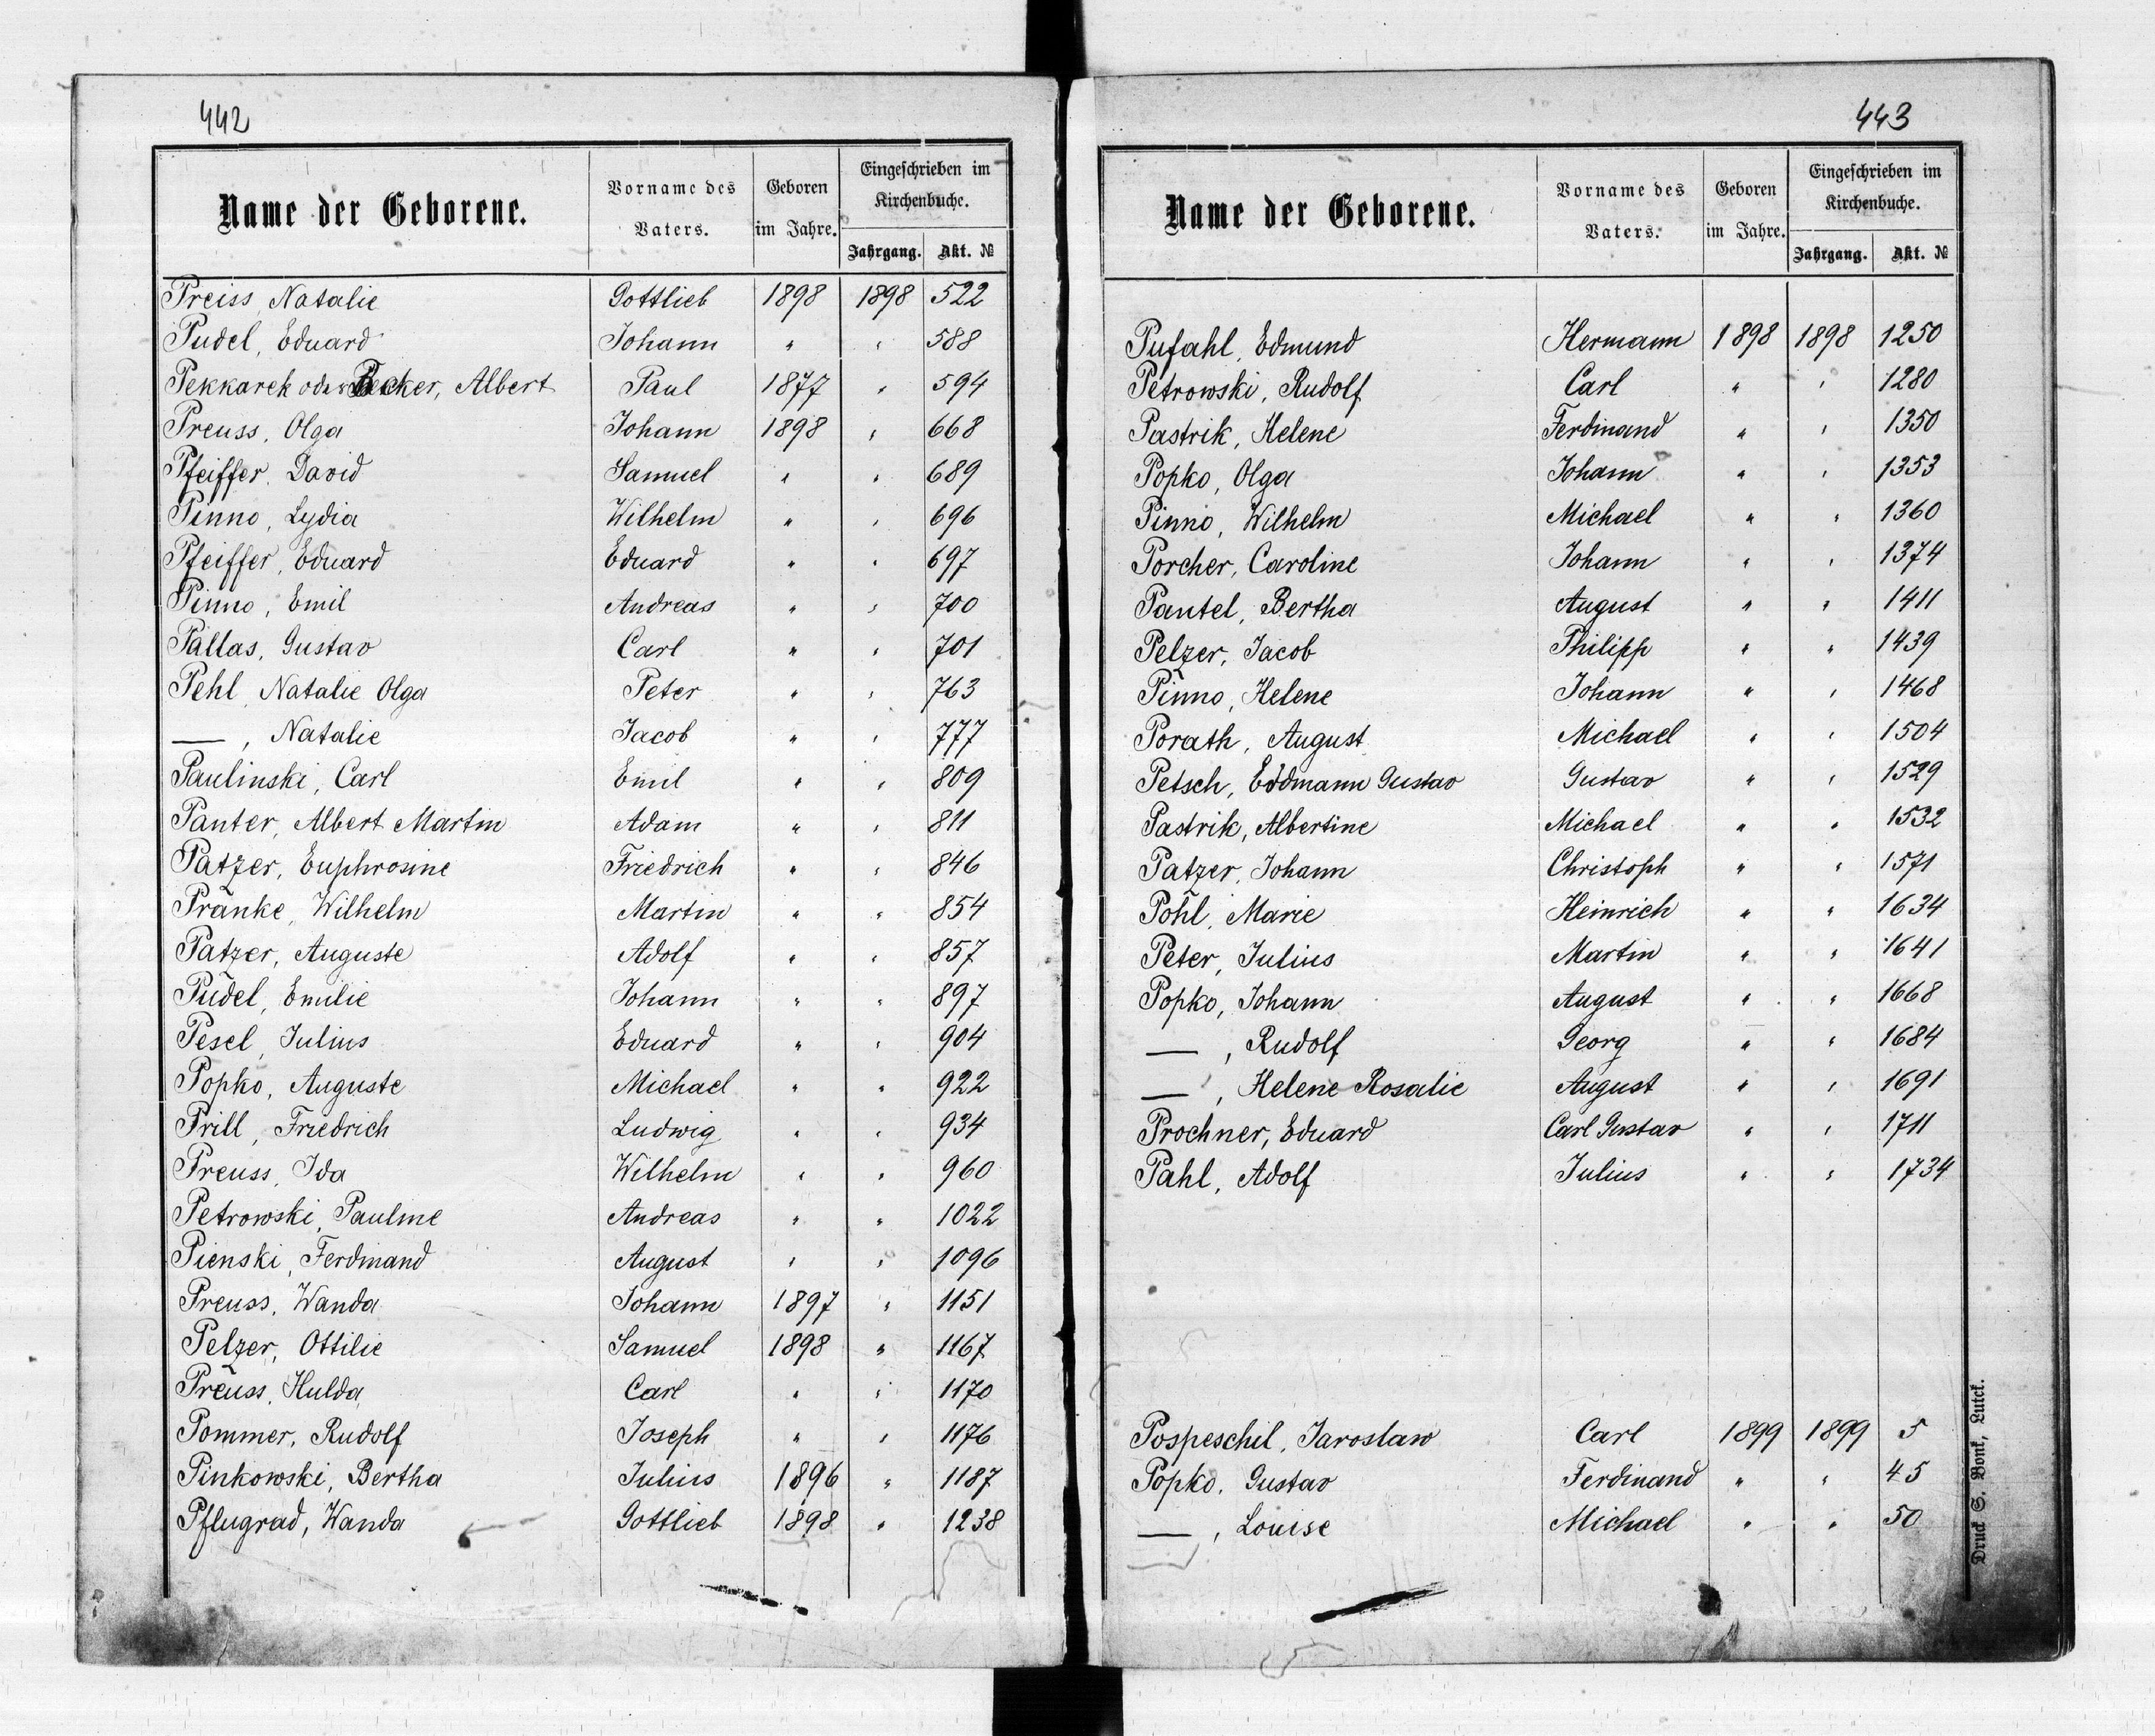 442
Name der Geborene.
Vorname des Vaters.
Geboren im Jahre.
Eingeschrieben im Kirchenbuche.
Jahrgang. Akt. №
Preiss, Natalie Gottlieb 1898 1898 522
Pudel, Eduard Johann " " 588
Pekkarek oder Becker, Albert Paul 1877 " 594
Preuss, Olga Johann 1898 " 668
Pfeiffer, David Samuel " " 689
Pinno, Lydia Wilhelm " " 696
Pfeiffer, Eduard Eduard " " 697
Pinno, Emil Andreas " " 700
Pallas, Gustav Carl " " 701
Pehl, Natalie Olga Peter " " 763
—, Natalie Jacob " " 777
Paulinski, Carl Emil " " 809
Panter, Albert Martin Adam " " 811
Patzer, Euphrosine Friedrich " " 846
Pränke, Wilhelm Martin " " 854
Patzer, Auguste Adolf " " 857
Pudel, Emilie Johann " " 897
Pesel, Julius Eduard " " 904
Popko, Auguste Michael " " 922
Prill, Friedrich Ludwig " " 934
Preuss, Ida Wilhelm " " 960
Petrowski, Pauline Andreas " " 1022
Pienski, Ferdinand August " " 1096
Preuss, Wanda Johann 1897 " 1151
Pelzer, Ottilie Samuel 1898 " 1167
Preuss, Hulda Carl " " 1170
Pommer, Rudolf Joseph " " 1176
Pinkowski, Bertha Julius 1896 " 1187
Pflugrad, Wanda Gottlieb 1898 " 1238
443
Name der Geborene.
Vorname des Vaters.
Geboren im Jahre.
Eingeschrieben im Kirchenbuche.
Jahrgang. Akt. №
Pufahl, Edmund Hermann 1898 1898 1250
Petrowski, Rudolf Carl " " 1280
Pastrik, Helene Ferdinand " " 1350
Popko, Olga Johann " " 1353
Pinno, Wilhelm Michael " " 1360
Porcher, Caroline Johann " " 1374
Pantel, Bertha August " " 1411
Pelzer, Jacob Philipp " " 1439
Pinno, Helene Johann " " 1468
Porath, August Michael " " 1504
Petsch, Erdmann Gustav Gustav " " 1529
Pastrik, Albertine Michael " " 1532
Patzer, Johann Christoph " " 1571
Pohl, Marie Heinrich " " 1634
Peter, Julius Martin " " 1641
Popko, Johann August " " 1668
—, Rudolf Georg " " 1684
—, Helene Rosalie August " " 1691
Prochner, Eduard Carl Gustav " " 1711
Pahl, Adolf Julius " " 1734
Pospeschil, Jaroslaw Carl 1899 1899 5
Popko, Gustav Ferdinand " " 45
—, Louise Michael " " 50
Druck S. Bonk, Lutck.